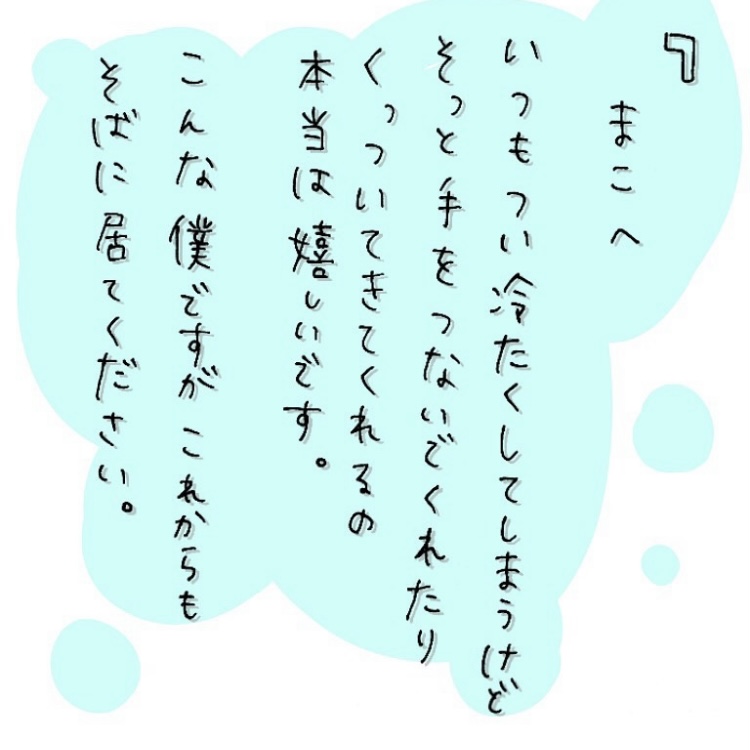 『
まこへ
いつもつい冷たくしてしまうけど
そっと手をつないでくれたり
くっついてきてくれるの
本当は嬉しいです。
こんな僕ですがこれからも
そばに居てください。